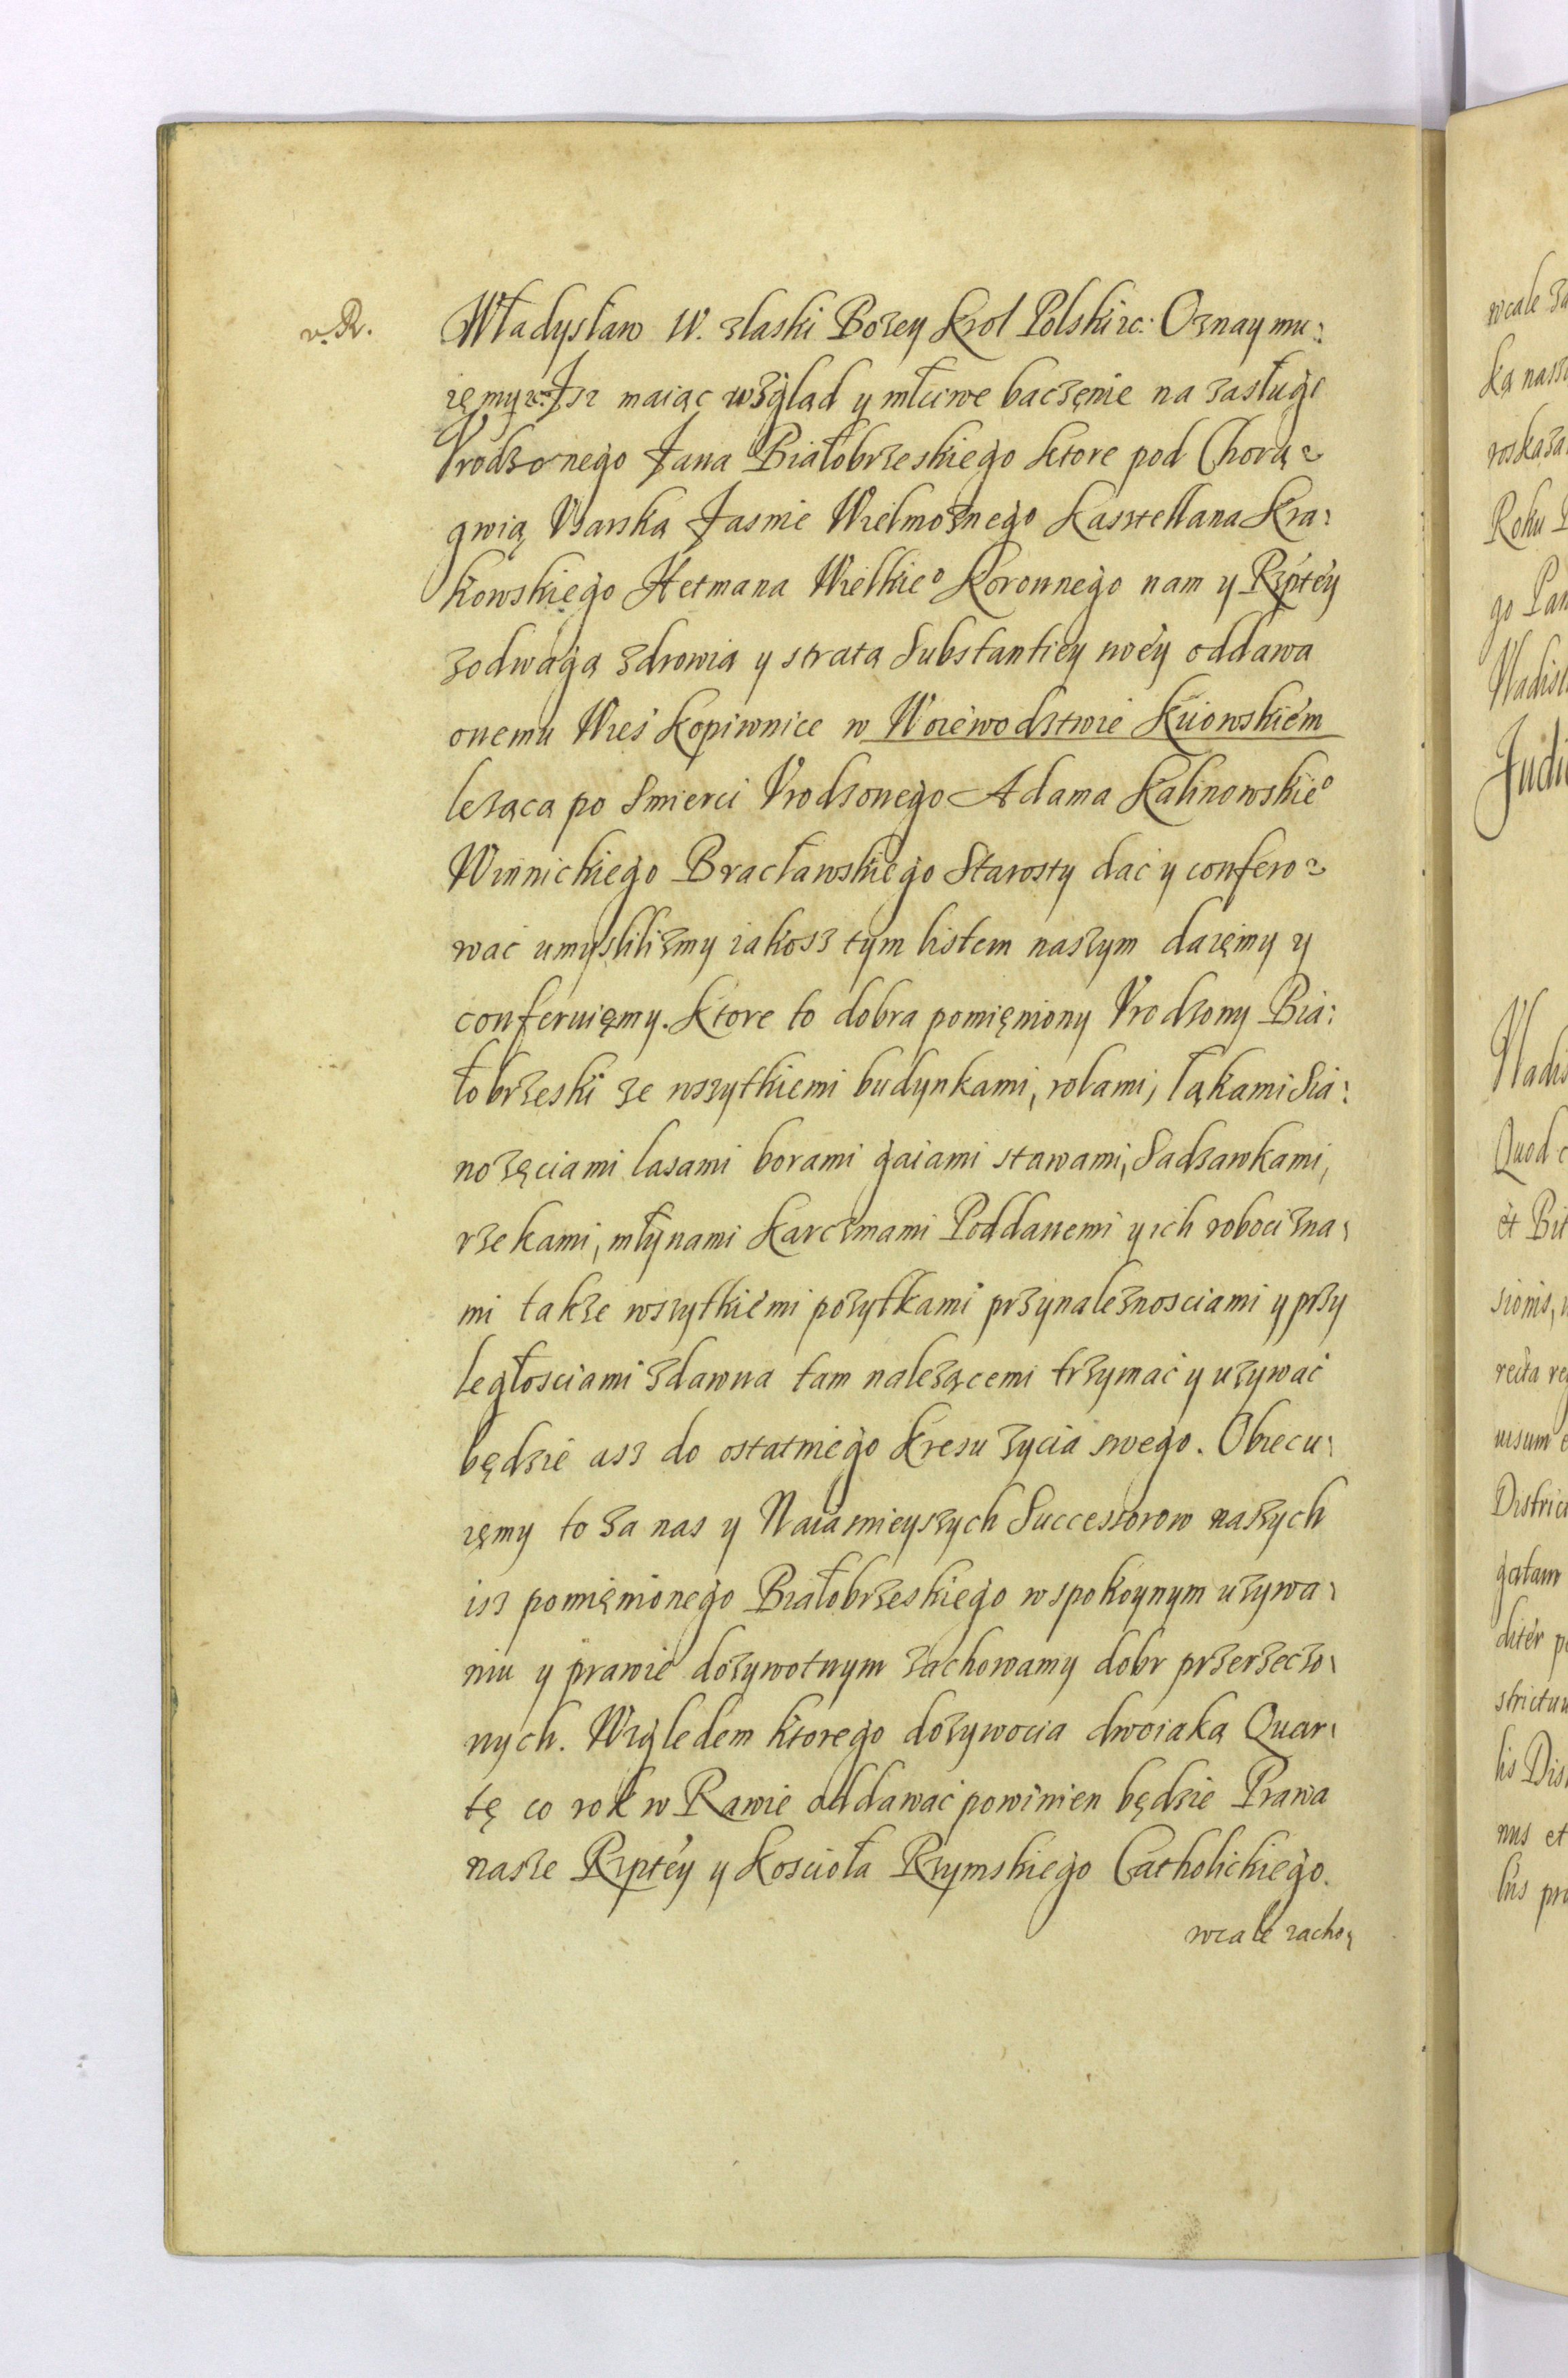 v. R.
Władysław IV. złaski Bozey Krol Polski zc: Oznaymu:
ięmy zc: Isz maiąc wzgląd y młciwe baczęnie na zasługi
Vrodzonego Jana Białobrzeskiego ktore pod Chorą:
gwią Vsarską Jasnie Wielmożnego Kasztellana Kra:
kowskiego Hetmana Wielkieº Koronnego nam y Rzptéy
zodwagą zdrowia y stratą Substantiey swéy oddawa
onemu Wieś Kopiwnice w Woiewodztwie Kiiowskiém
lezaca po Smierci Vrodzonego Adama Kalinowskieº
Winnickiego Bracławskiego Starosty dać y confero:
wać umyslilizmy iakosz tym listem naszym daięmy y
conferuięmy. Ktore to dobra pomięniony Vrodzony Bia:
łobrzeski ze wszytkiemi budynkami, rolami, łąkami Sia:
nozęciami lasami borami gaiami stawami, Sadzawkami,
rzekami, młynami Karczmami Poddanemi y ich robocizna:
mi takze wszytkiémi pożytkami przynaleznosciami y przy
ległosciami zdawna tam nalezącemi trzymać y uzywać
będzie asz do ostatniego Kresu zycia swego. Obiecu:
ięmy to za nas y Naiasnieyszych Successorow naszych
isz pomięnionego Białobrzeskiego w spokoynym uzywa:
niu y prawie dożywotnym zachowamy dobr przerzeczo:
nych. Względem ktorego dożywocia dwoiaką Quar:
tę co rok w Rawie oddawać powinien będzie Prawa
nasze Rzptéy y Koscioła Rzymskiego Catholickiego.
wcale zacho: